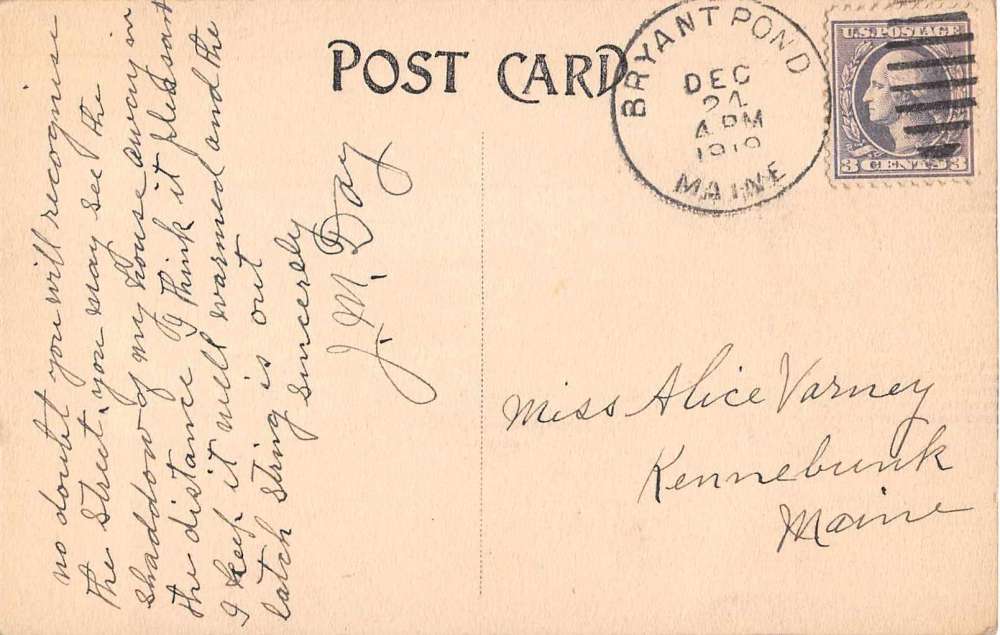 no doubt you will recognise
the street, you may see the
shaddow of my house away in
the distance I think it plesant
I keep it well warmed and the
latch string is out
sincerely
J. M. Day
POST CARD
BRYANT POND
DEC
24
4 PM
MAINE
U.S. POSTAGE
3 CENTS 3
Miss Alice Varney
Kennebunk
Maine